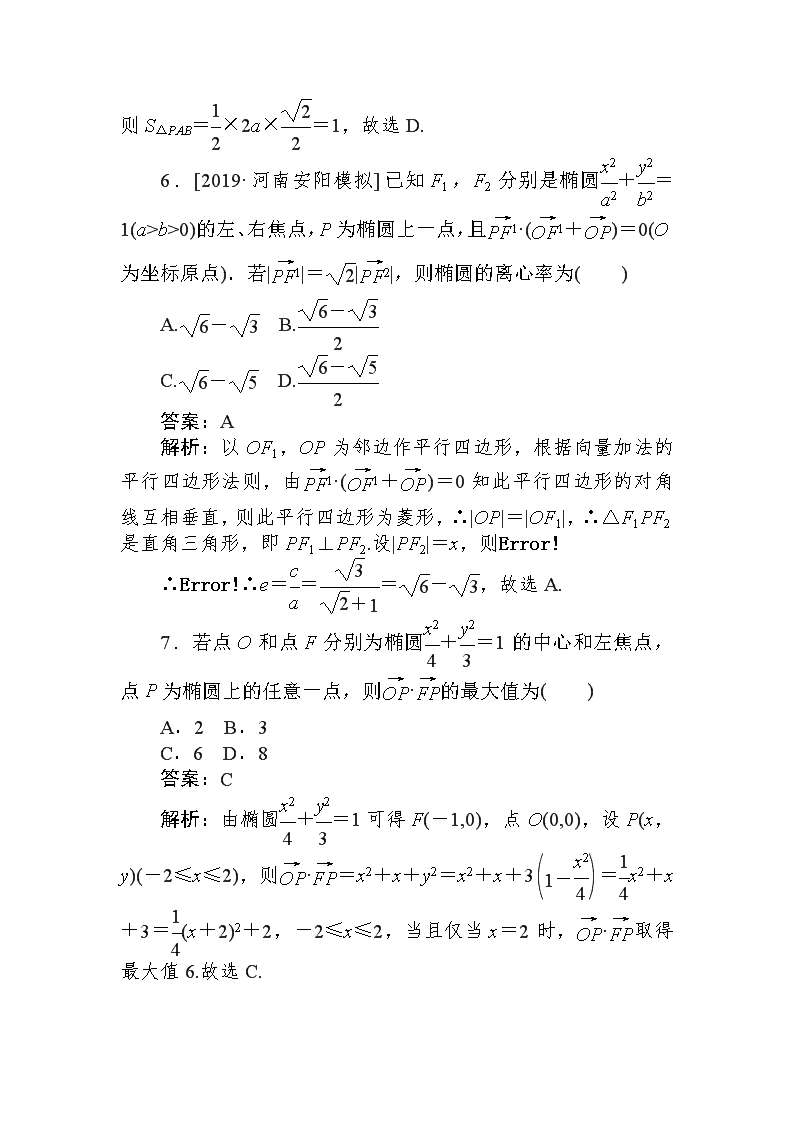 则 S△PAB=\frac{1}{2}×2a×\frac{\sqrt{2}}{2}=1，故选 D.
6．[2019·河南安阳模拟]已知 F₁，F₂ 分别是椭圆\frac{x²}{a²}+\frac{y²}{b²}=
1(a>b>0)的左、右焦点，P 为椭圆上一点，且\overrightarrow{PF}₁·(\overrightarrow{OF}₁+\overrightarrow{OP})=0(O
为坐标原点)．若|\overrightarrow{PF}₁|=\sqrt{2}|\overrightarrow{PF}₂|，则椭圆的离心率为(　　)
A.\sqrt{6}-\sqrt{3}　B.\frac{\sqrt{6}-\sqrt{3}}{2}
C.\sqrt{6}-\sqrt{5}　D.\frac{\sqrt{6}-\sqrt{5}}{2}
答案：A
解析：以 OF₁，OP 为邻边作平行四边形，根据向量加法的
平行四边形法则，由\overrightarrow{PF}₁·(\overrightarrow{OF}₁+\overrightarrow{OP})=0 知此平行四边形的对角
线互相垂直，则此平行四边形为菱形，∴|OP|=|OF₁|，∴△F₁PF₂
是直角三角形，即 PF₁⊥PF₂.设|PF₂|=x，则Error!
∴Error!∴e=\frac{c}{a}=\frac{\sqrt{3}}{\sqrt{2}+1}=\sqrt{6}-\sqrt{3}，故选 A.
7．若点 O 和点 F 分别为椭圆\frac{x²}{4}+\frac{y²}{3}=1 的中心和左焦点，
点 P 为椭圆上的任意一点，则\overrightarrow{OP}·\overrightarrow{FP}的最大值为(　　)
A．2　B．3
C．6　D．8
答案：C
解析：由椭圆\frac{x²}{4}+\frac{y²}{3}=1 可得 F(－1,0)，点 O(0,0)，设 P(x，
y)(－2≤x≤2)，则\overrightarrow{OP}·\overrightarrow{FP}=x²+x+y²=x²+x+3(1-\frac{x²}{4})=\frac{1}{4}x²+x
+3=\frac{1}{4}(x+2)²+2，－2≤x≤2，当且仅当 x=2 时，\overrightarrow{OP}·\overrightarrow{FP}取得
最大值 6.故选 C.